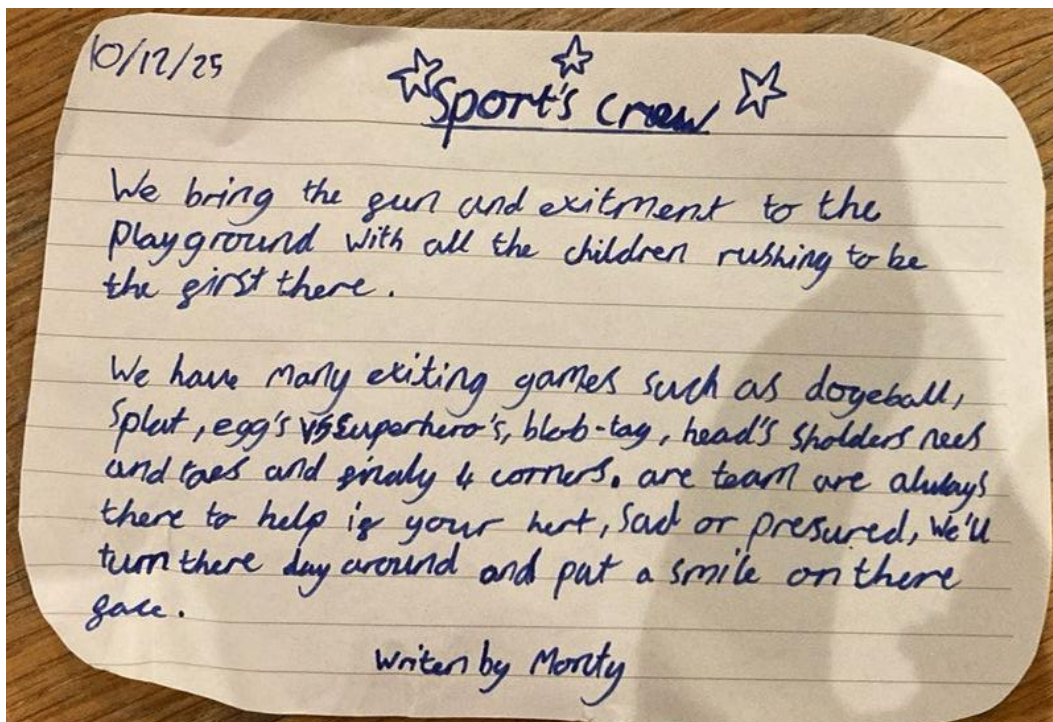 10/12/25
Sport's crew
We bring the fun and exitment to the
playground with all the children rushing to be
the first there.
We have many exiting games such as dogeball,
Splat, egg's vs Superhero's, blob-tag, head's sholders nees
and toes and finaly 4 corners. are team are always
there to help if your hert, sad or presured, we'll
turn there day around and put a smile on there
face.
Writen by Monty